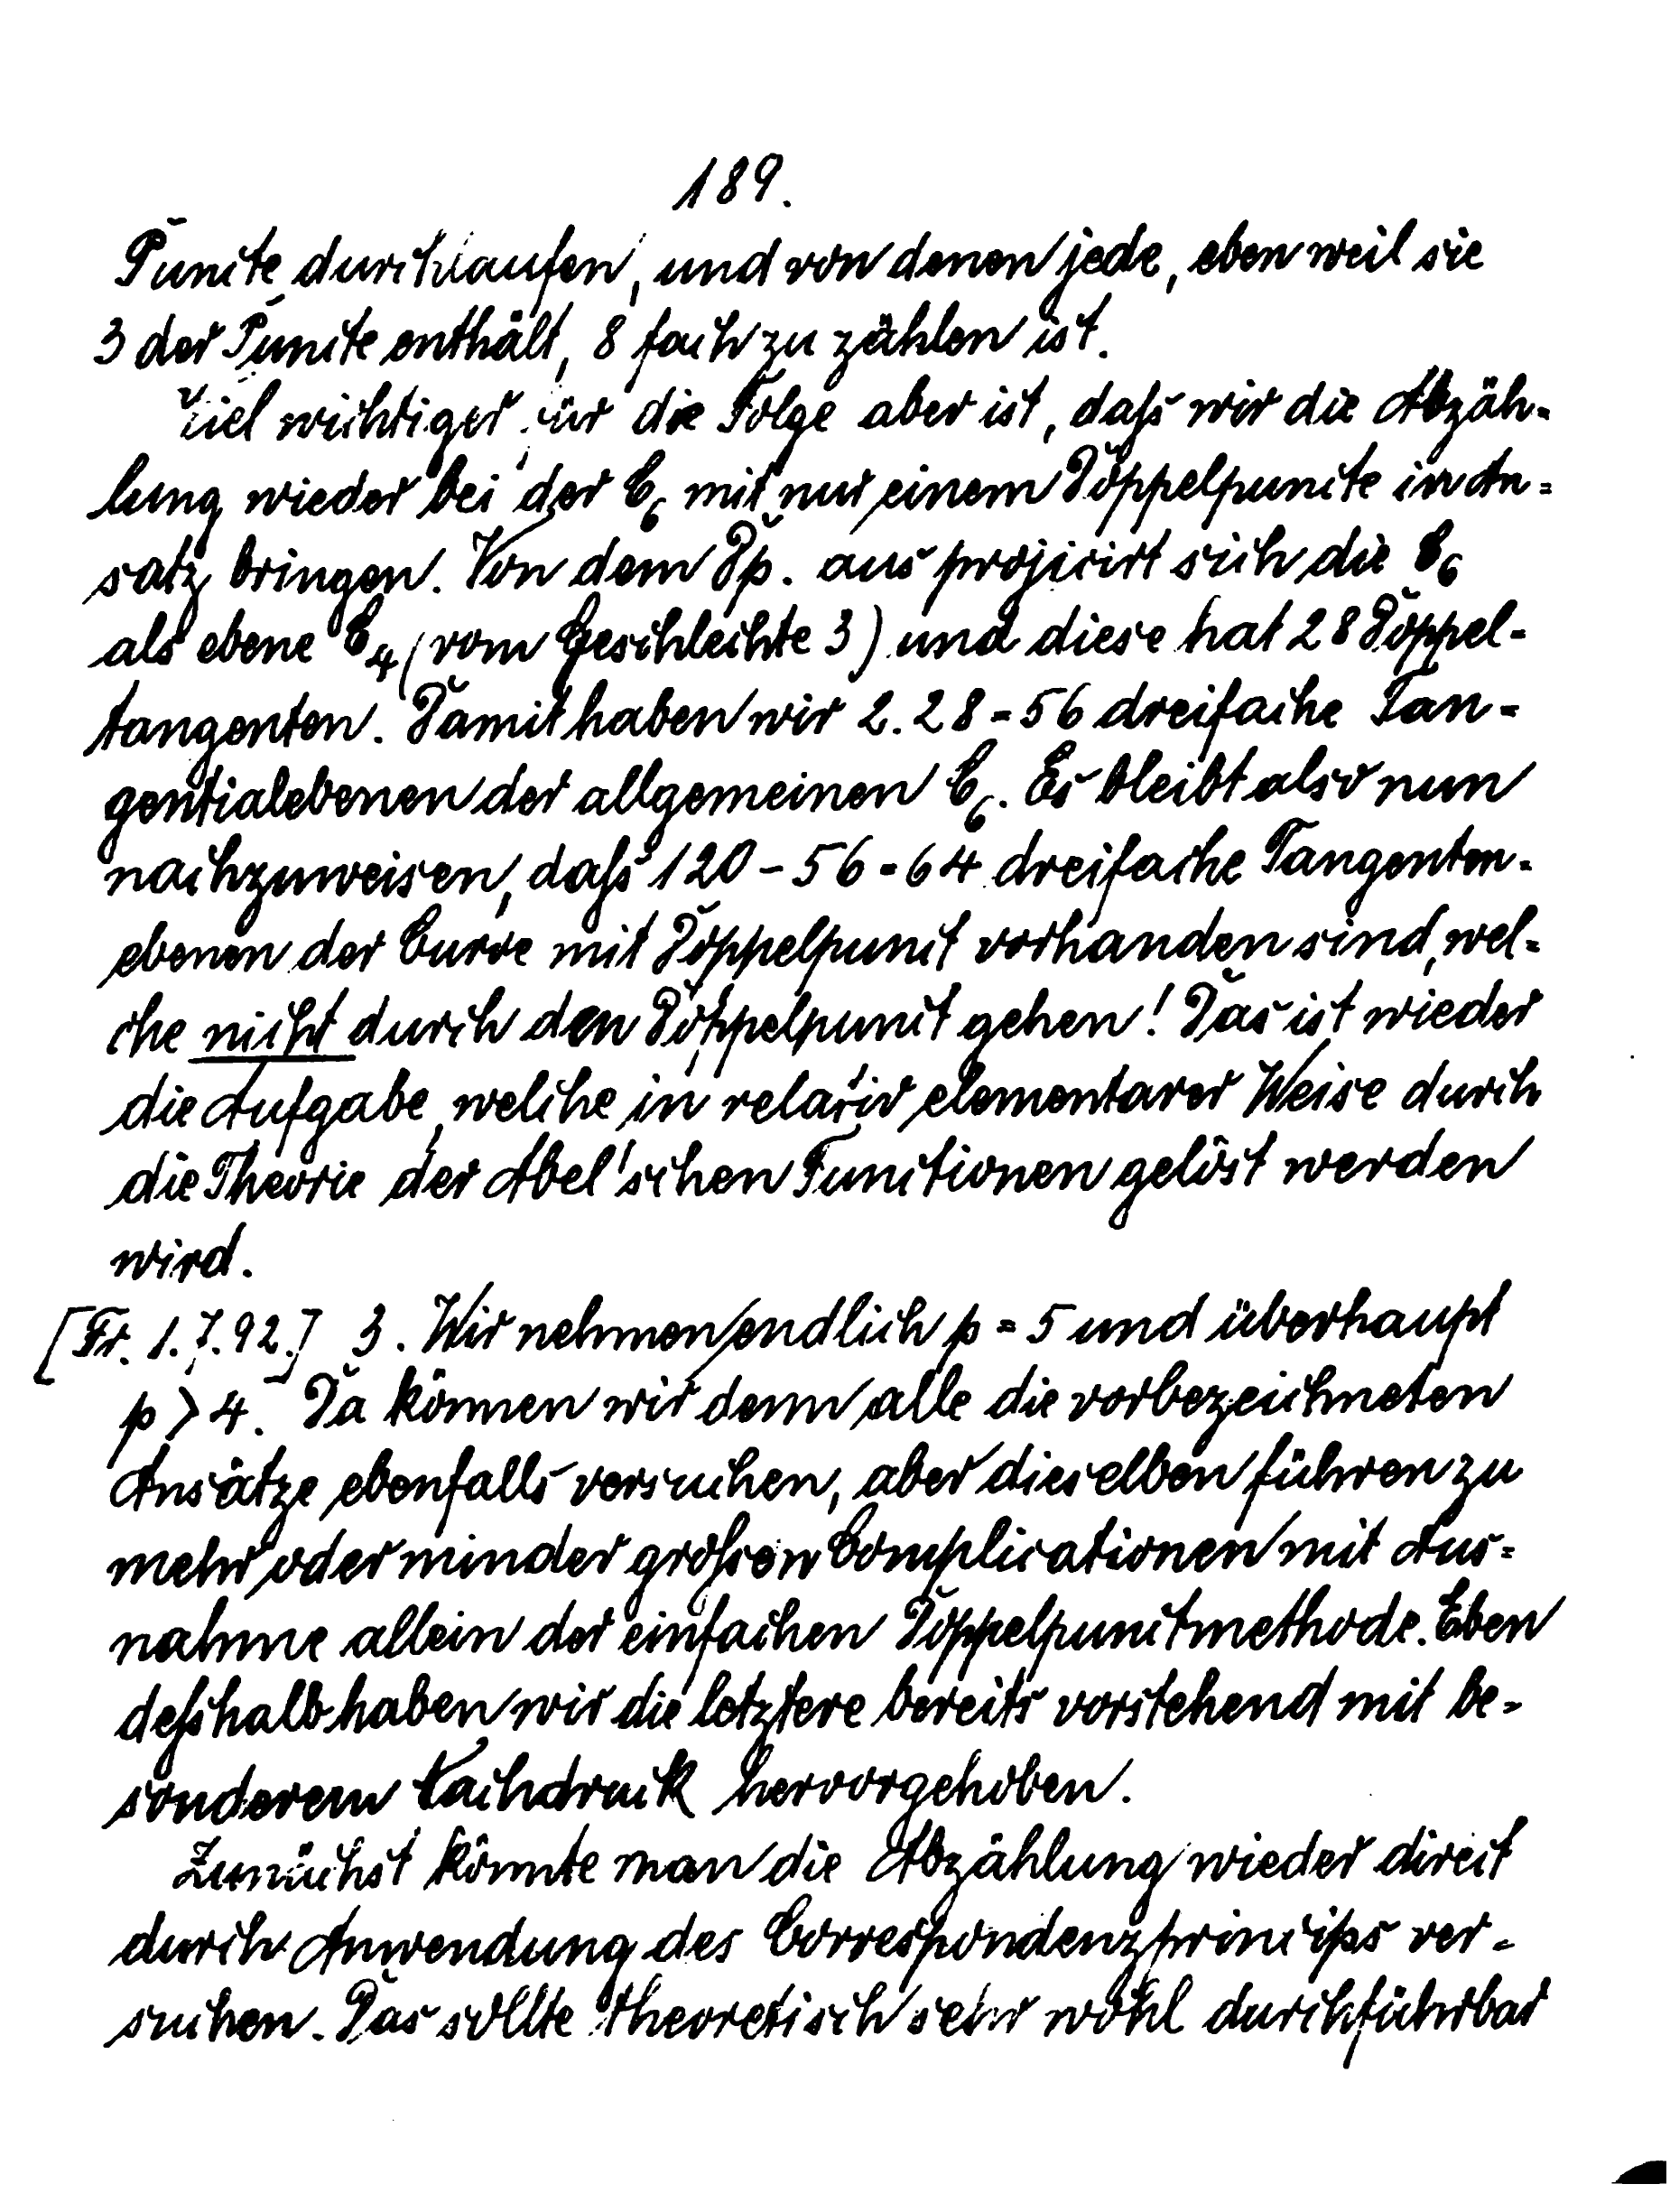 189.
Puncte durchlaufen, und von denen jede, eben weil sie
3 der Puncte enthält, 8 fach zu zählen ist.
Viel wichtiger für die Folge aber ist, daß wir die Abzäh-
lung wieder bei der C₆ mit nur einem Doppelpuncte in An=
satz bringen. Von dem Dp. aus projicirt sich die C₆
als ebene C₄ (vom Geschlechte 3) und diese hat 28 Doppel-
tangenten. Damit haben wir 2.28=56 dreifache Tan-
gentialebenen der allgemeinen C₆. Es bleibt also nun
nachzuweisen, daß 120-56=64 dreifache Tangenten-
ebenen der Curve mit Doppelpunct vorhanden sind, wel-
che nicht durch den Doppelpunct gehen! Das ist wieder
die Aufgabe, welche in relativ elementarer Weise durch
die Theorie der Abel'schen Functionen gelöst werden
wird.
[Fr. 1.7.92.] 3. Wir nehmen endlich p=5 und überhaupt
p>4. Da können wir denn alle die vorbezeichneten
Ansätze ebenfalls versuchen, aber dieselben führen zu
mehr oder minder großen Complicationen mit Aus=
nahme allein der einfachen Doppelpunctmethode. Eben
deßhalb haben wir die letztere bereits vorstehend mit be-
sonderem Nachdruck hervorgehoben.
Zunächst könnte man die Abzählung wieder direct
durch Anwendung des Correspondenzprincips ver-
suchen. Das sollte theoretisch sehr wohl durchführbar